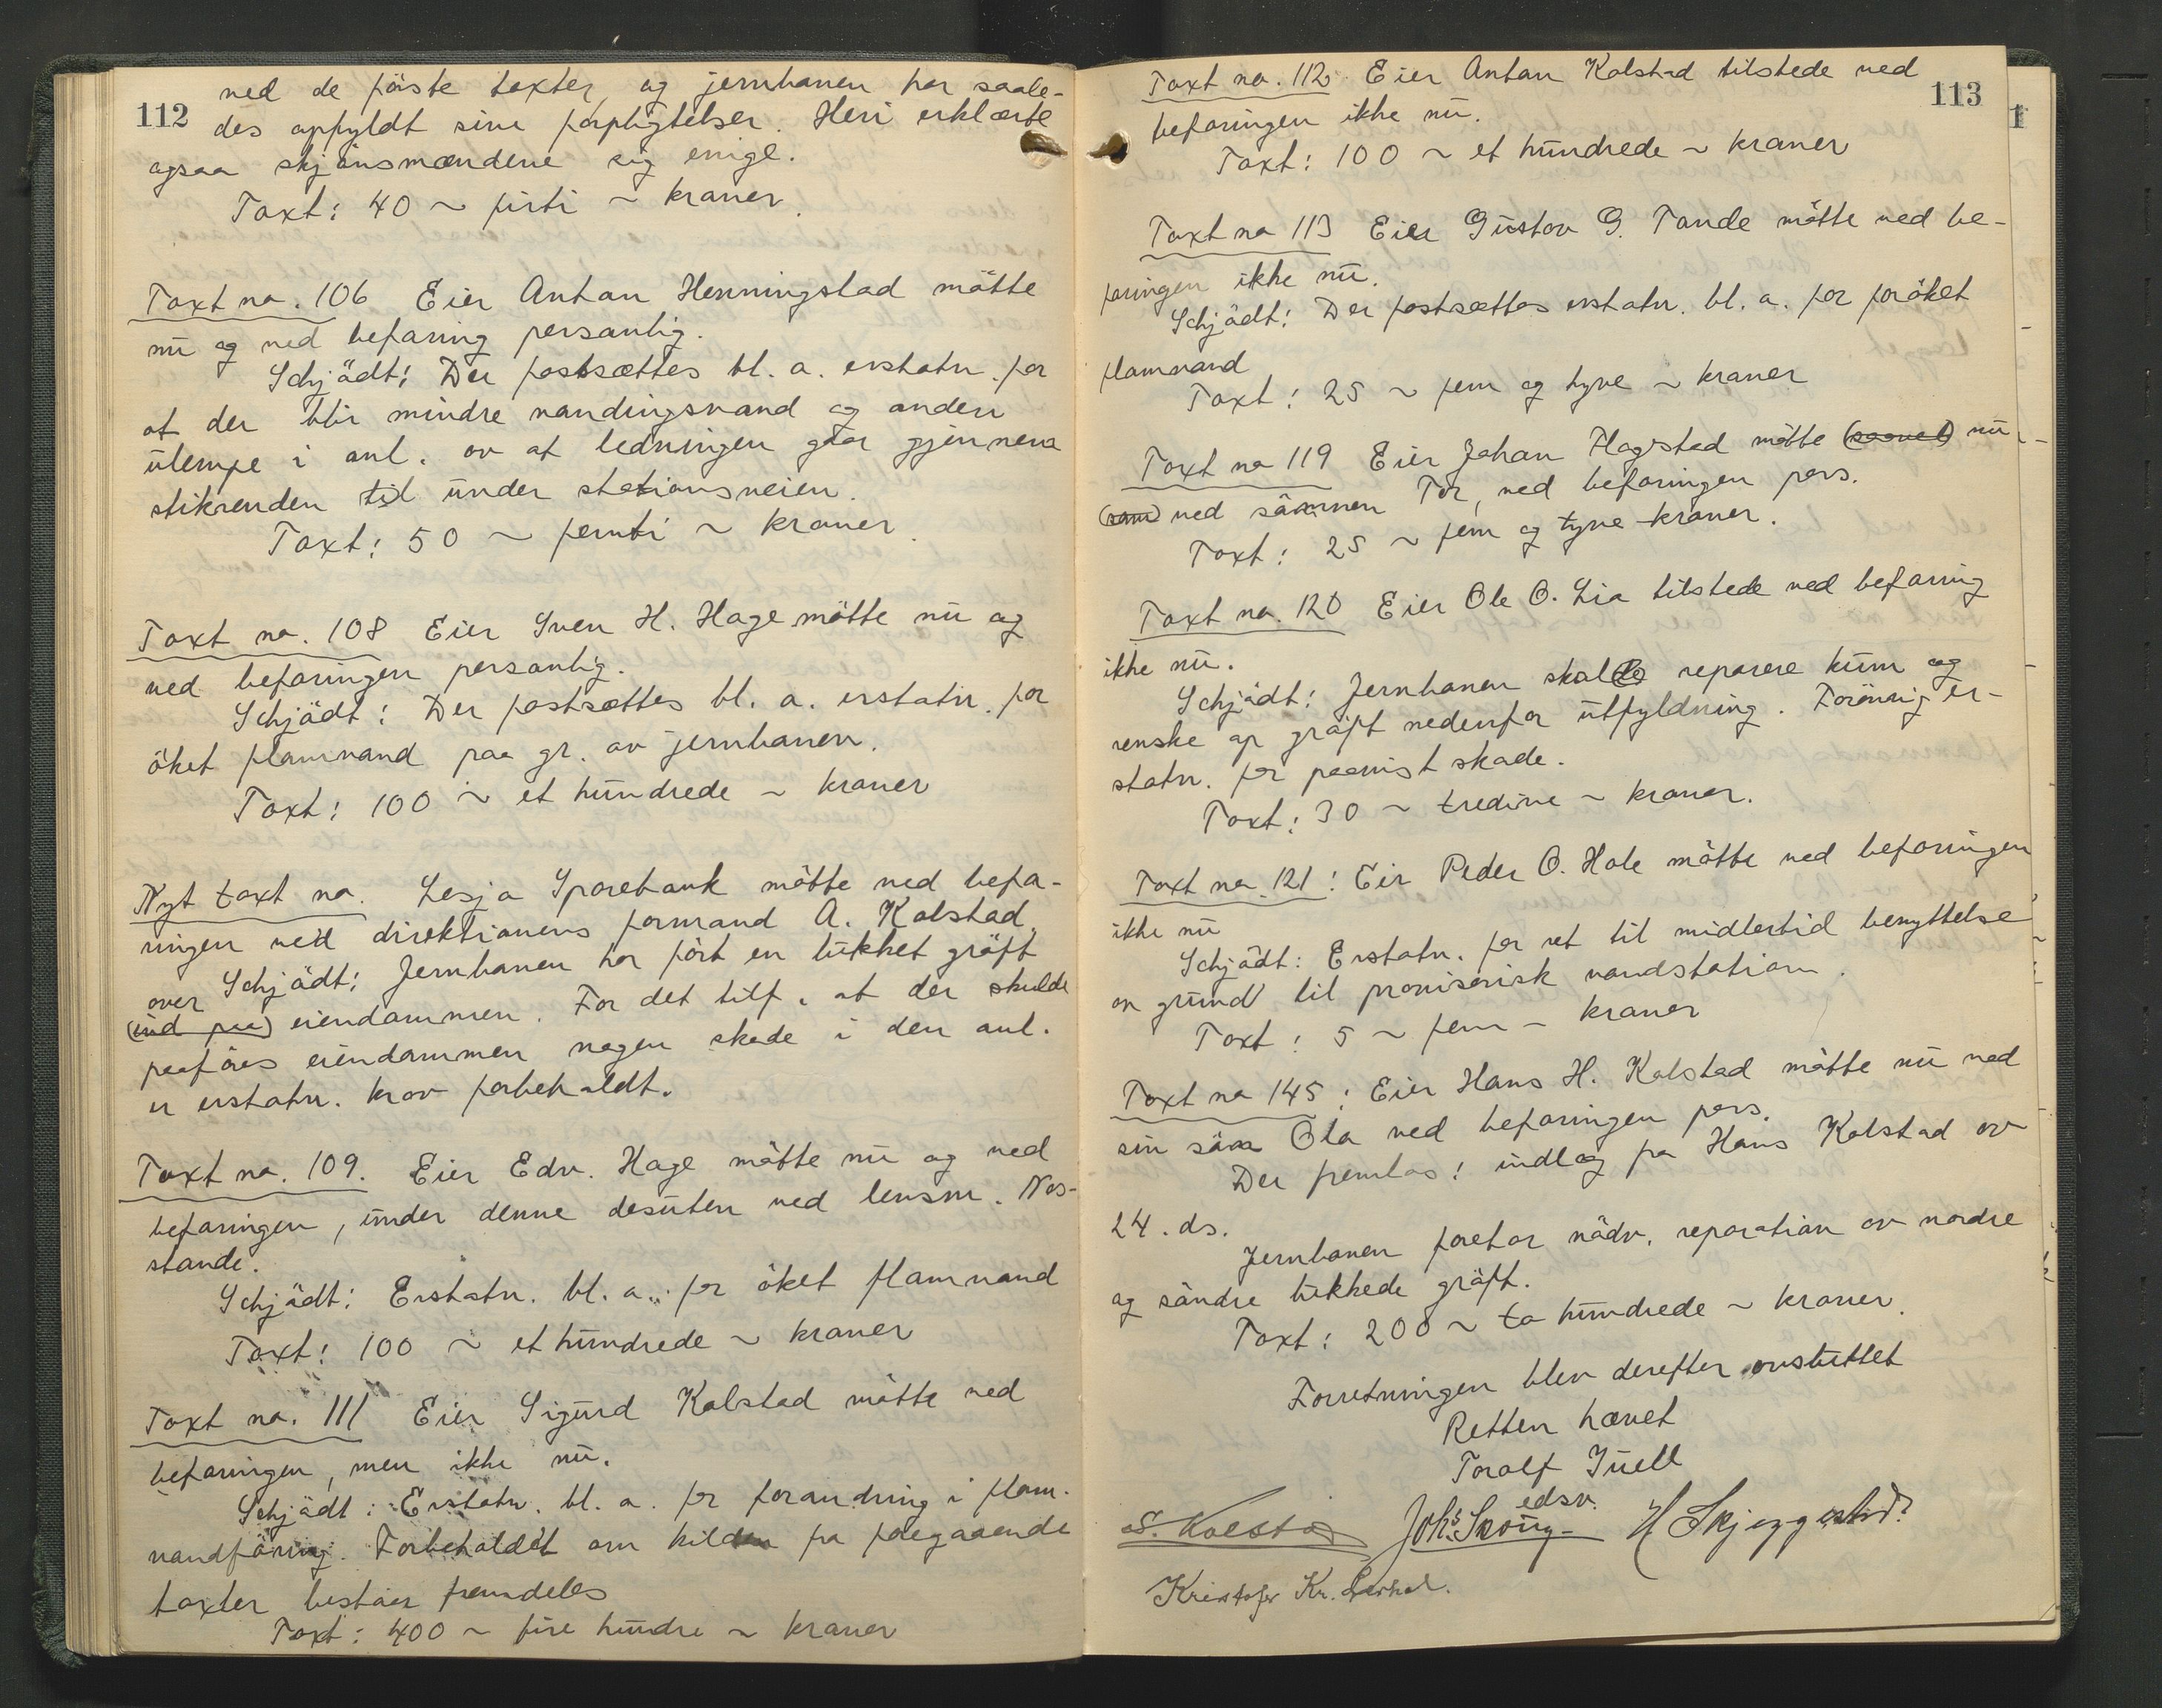 112
ved de første taxter, og jernbanen har saale-
des opfyldt sine forpligtelser. Heri erklærte
ogsaa skjønsmændene sig enige.
Taxt: 40 ~ firti ~ kroner.
Taxt no. 106 Eier Anton Henningstad møtte
nu og ved befaring personlig.
Schjødt: Der fastsættes bl. a. erstatn. for
at der blir mindre vandingsvand og anden
ulempe i anl. av at ledningen gaar gjennem
stikrenden til under stationsveien.
Taxt: 50 ~ femti ~ kroner.
Taxt no. 108 Eier Sven H. Hage møtte nu og
ved befaringen personlig.
Schjødt: Der fastsættes bl. a. erstatn. for
øket flomvand paa gr. av jernbanen.
Taxt: 100 ~ et hundrede ~ kroner
Nyt taxt no. Lesja Sparebank møtte ved befa-
ringen ved direktionens formand A. Kolstad.
Schjødt: Jernbanen har ført en lukket grøft
over (ind paa) eiendommen. For det tilf. at der skulde
paaføres eiendommen nogen skade i den anl.
er erstatn. krav forbeholdt.
Taxt no. 109. Eier Edv. Hage møtte nu og ved
befaringen, under denne desuten ved lensm. Nos-
stande.
Schjødt: Erstatn. bl. a. for øket flomvand
Taxt: 100 ~ et hundrede ~ kroner
Taxt no. 111 Eier Sigurd Kolstad møtte ved
befaringen, men ikke nu.
Schjødt: Erstatn. bl. a. for forandring i flom-
vandføring. Forbeholdet om kilden fra foregaaende
taxter bestaar fremdeles
Taxt: 400 ~ fire hundre ~ kroner
113
Taxt no. 112 Eier Anton Kolstad tilstede ved
befaringen ikke nu.
Taxt: 100 ~ et hundrede ~ kroner
Taxt no 113 Eier Gustav G. Tande møtte ved be-
faringen ikke nu.
Schjødt: Der fastsættes erstatn. bl. a. for forøket
flomvand
Taxt: 25 ~ fem og tyve ~ kroner
Taxt no 119 Eier Johan Flagstad møtte (saavel) nu
(som) ved sønnen Tor, ved befaringen pers.
Taxt: 25 ~ fem og tyve kroner.
Taxt no. 120 Eier Ole O. Lia tilstede ved befaring
ikke nu.
Schjødt: Jernbanen skal reparere kum og
renske op grøft nedenfor utfyldning. Forøvrig er-
statn. for paavist skade.
Taxt: 30 ~ tredive ~ kroner.
Taxt no. 121: Eier Peder O. Hole møtte ved befaringen
ikke nu
Schjødt: Erstatn. for ret til midlertid benyttelse
av grund til provisorisk vandstation.
Taxt: 5 ~ fem – kroner
Taxt no 145: Eier Hans H. Kolstad møtte nu ved
sin søn Ola ved befaringen pers.
Der fremlas: indlæg fra Hans Kolstad av
24. ds.
Jernbanen foretar nødv. reparation av nordre
og søndre lukkede grøft.
Taxt: 200 ~ to hundrede ~ kroner.
Forretningen blev derefter avsluttet
Retten hævet
Toralf Juell
edsv.
S. Kolstad Johs. Skoug H Skjeggestad
Kristofer Kr.